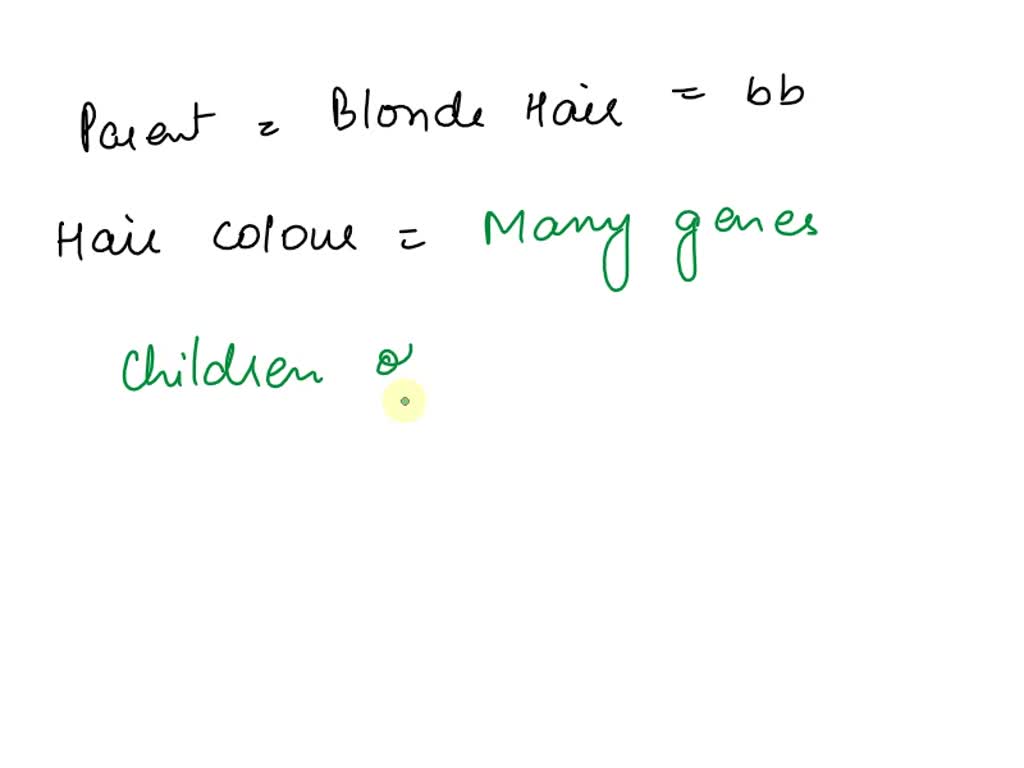 Parent = Blonde Hair = bb
Hair colour = Many genes
Children o